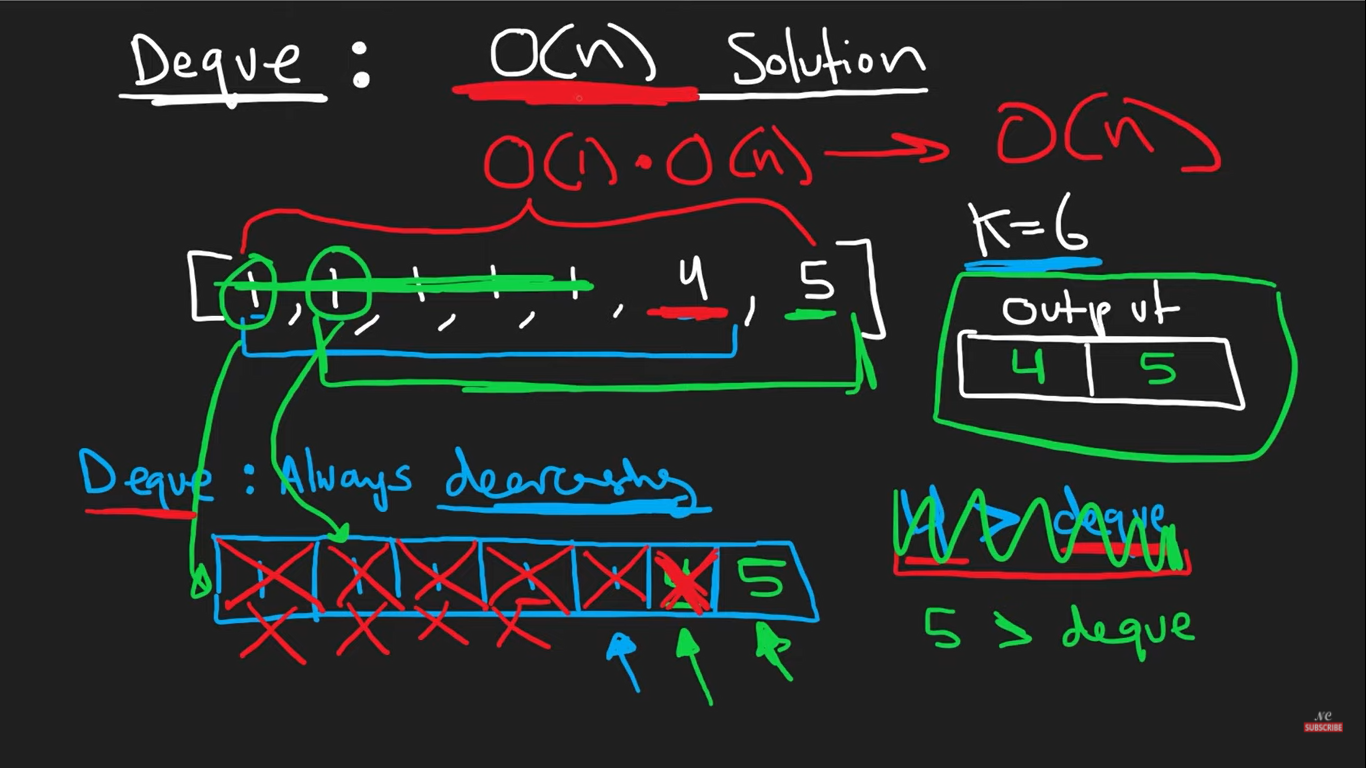 Deque : O(n) Solution
O(1) · O(n) → O(n)
K=6
[1, 1, 1, 1, 1, 4, 5]
Output
4 5
Deque : Always decreasing
4 > deque
1 1 1 1 1 4 5
5 > deque
NC
SUBSCRIBE